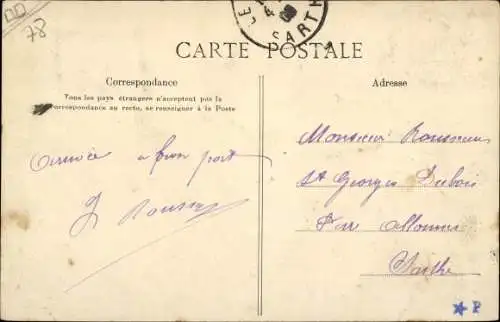 DD
78
LE
09
SARTH
CARTE POSTALE
Correspondance
Adresse
Tous les pays étrangers n'acceptent pas la
correspondance au recto, se renseigner à la Poste
Arrivée a bon port
Monsieur Rousseau
St Georges Dubois
Par Allonnes
Sarthe
P